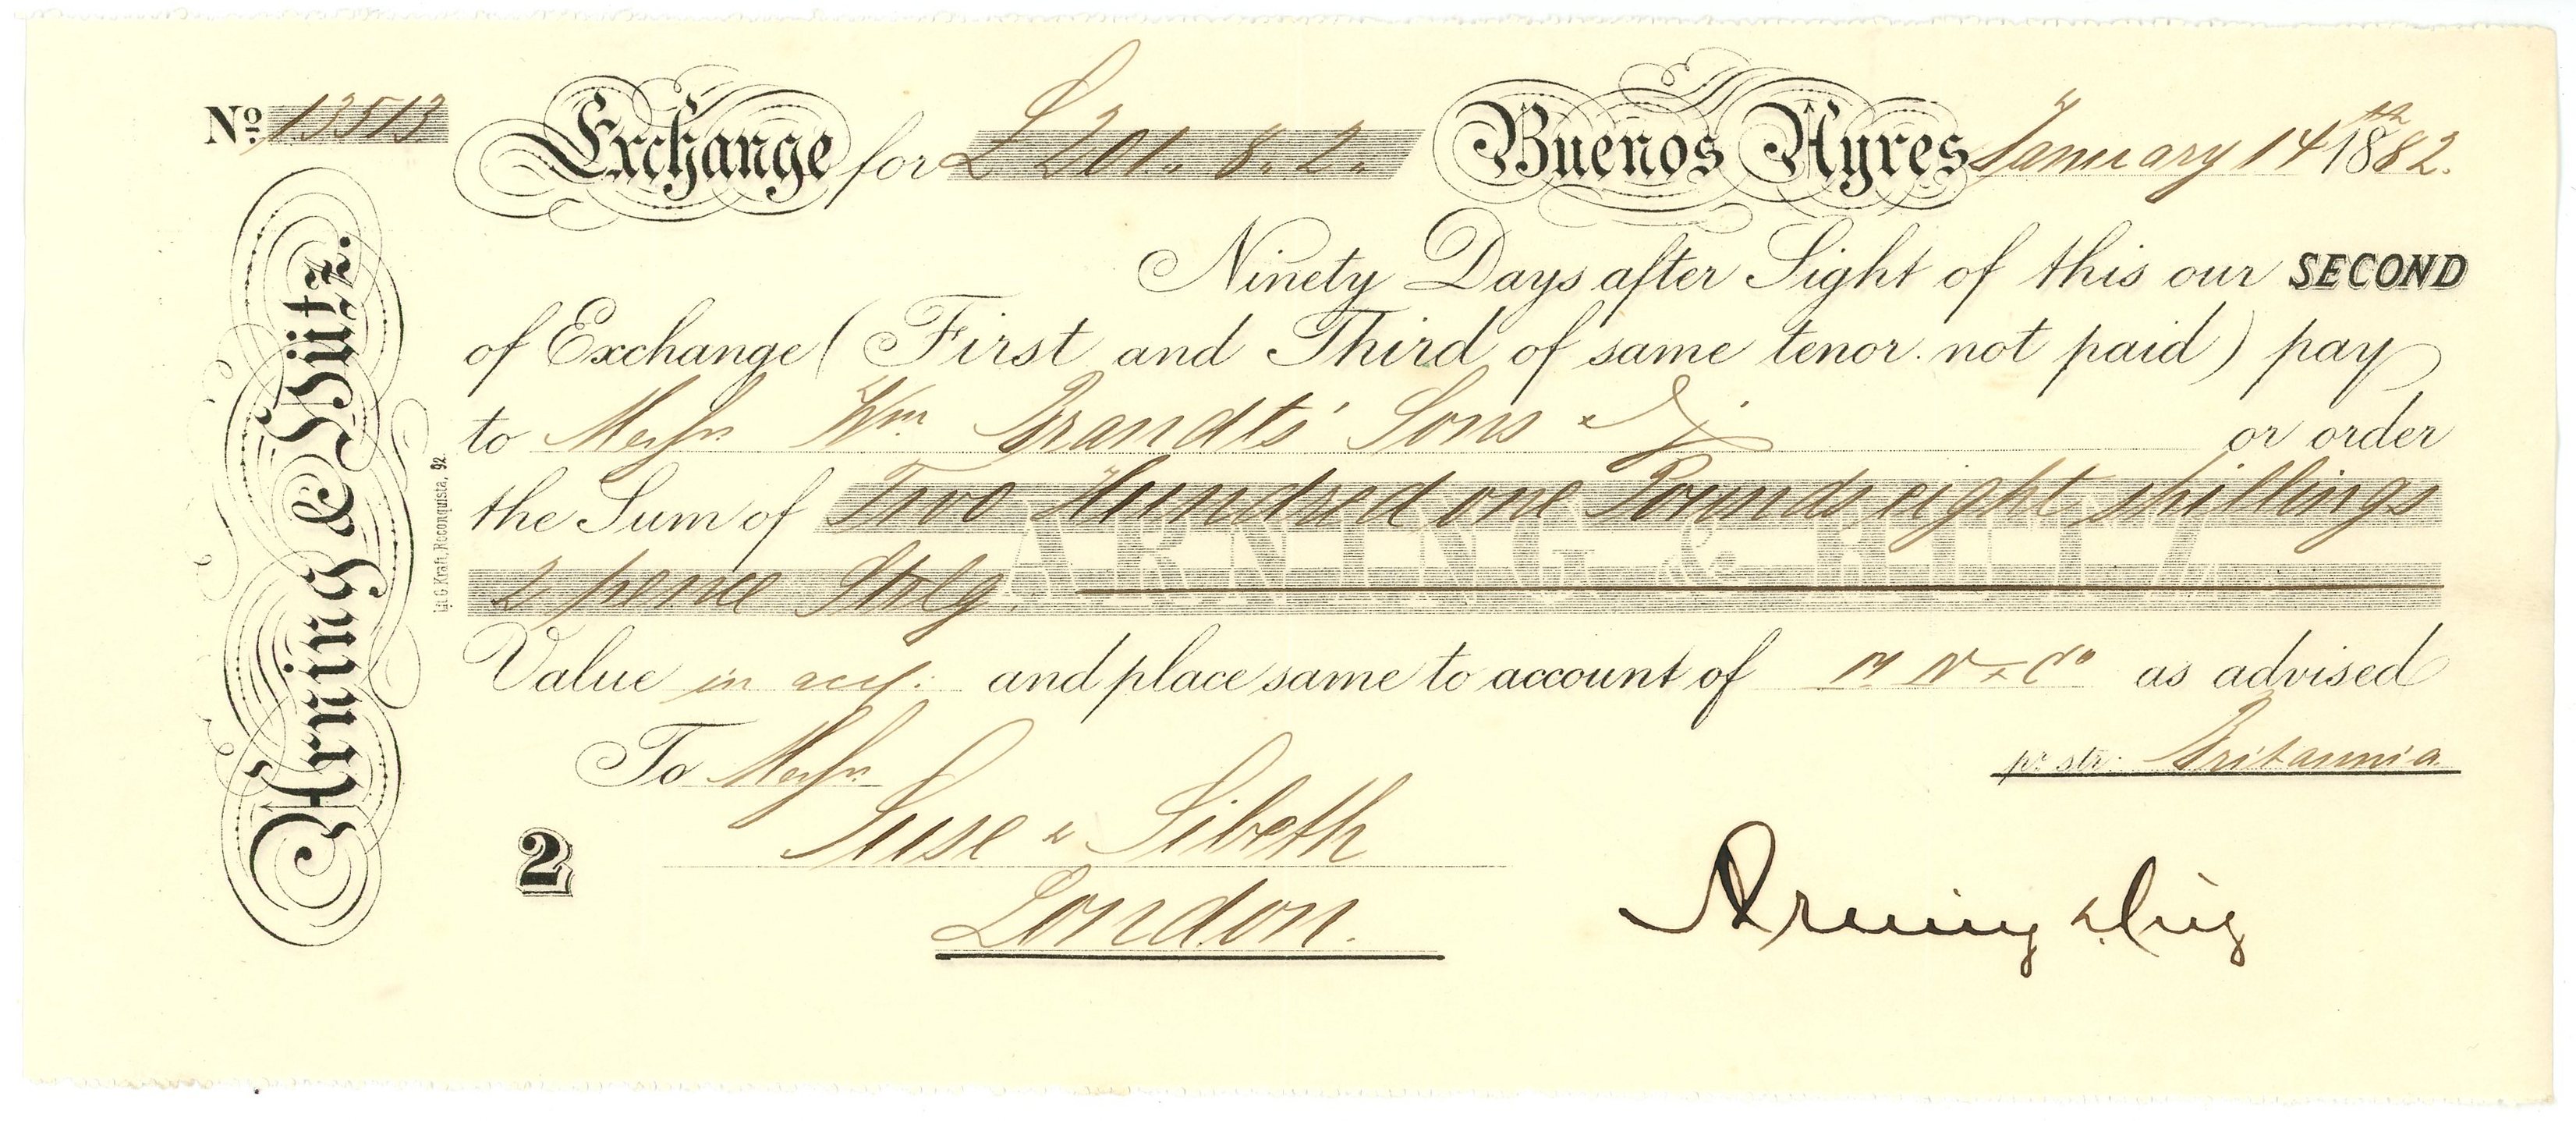 No. 13513 Exchange for £ 201. 8. 2. Buenos Ayres January 14th 1882.
Ninety Days after Sight of this our SECOND
of Exchange ( First and Third of same tenor not paid ) pay
to Messrs Wm. Brandts' Sons & Co or order
the Sum of Two Hundred one Pounds eight shillings
2 pence Strlg.
ARNING & HÜTZ
Value in acct. and place same to account of M N & Co as advised
pr. str. Britannia
To Messrs
Suse & Sibeth
London.
2
Arning &
Arning & Hütz.
Lit. G. Kraft, Reconquista, 92